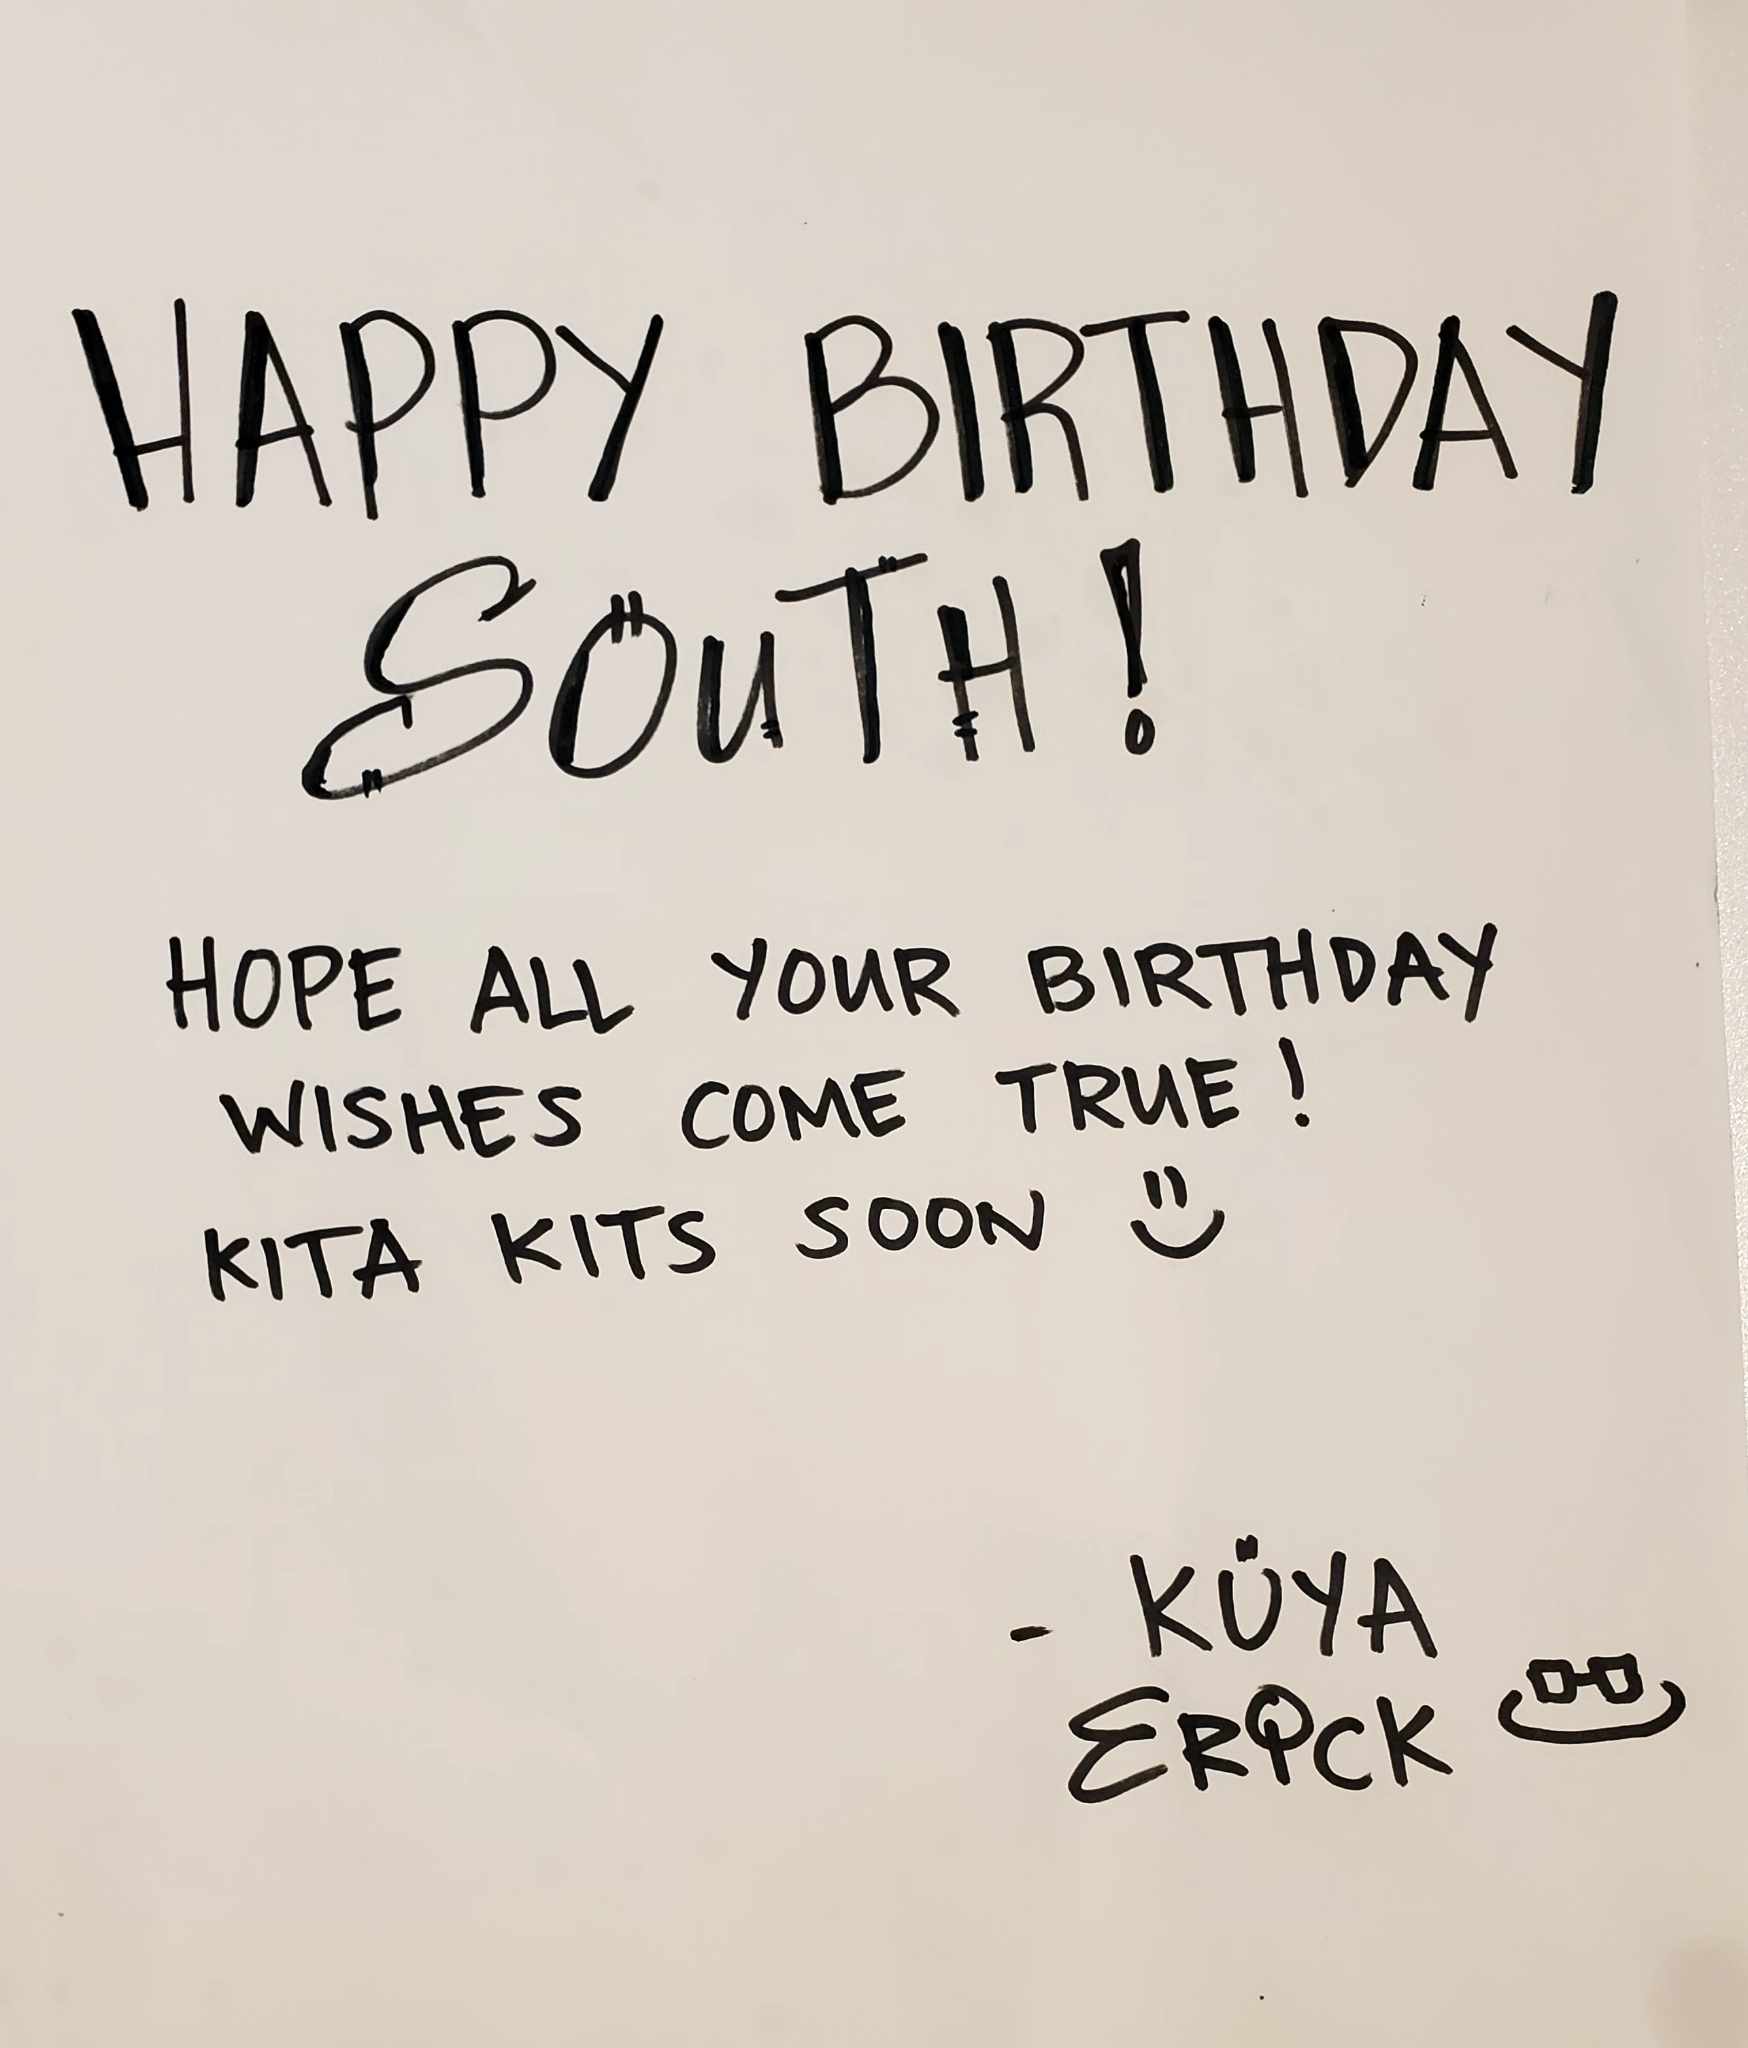 HAPPY BIRTHDAY
SOUTH!
HOPE ALL YOUR BIRTHDAY
WISHES COME TRUE!
KITA KITS SOON
- KÜYA
ERICK